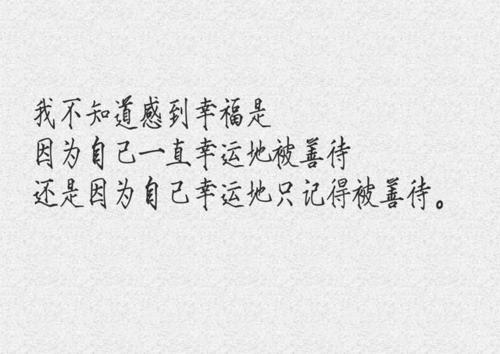 我不知道感到幸福是
因为自己一直幸运地被善待
还是因为自己幸运地只记得被善待。